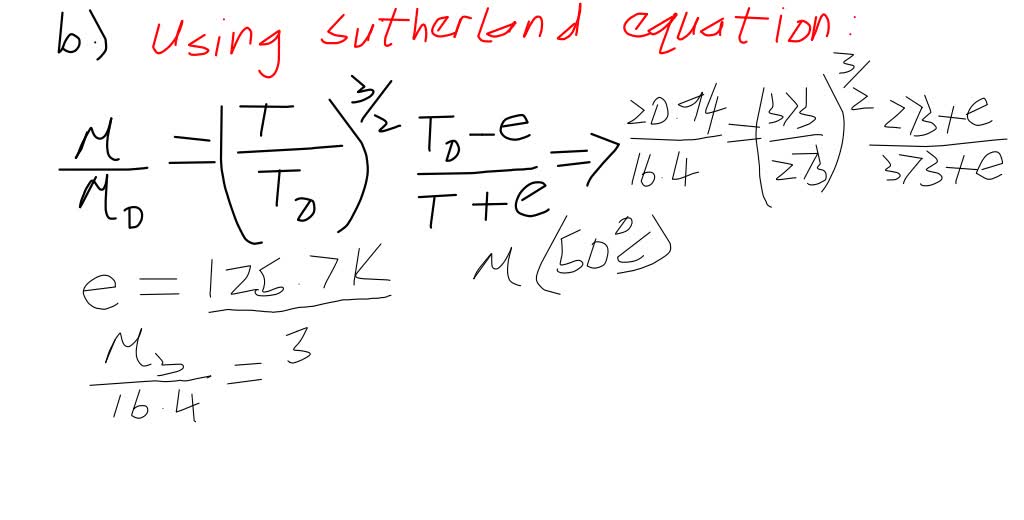 b.) Using sutherland equation:
M/M₀ = (T/T₀)^3/2 T₀-e/T+e => 20.94/16.4 = (373/273)^3/2 273+e/373+e
e = 125.7K M(50°C)
M₃/16.4 = 3